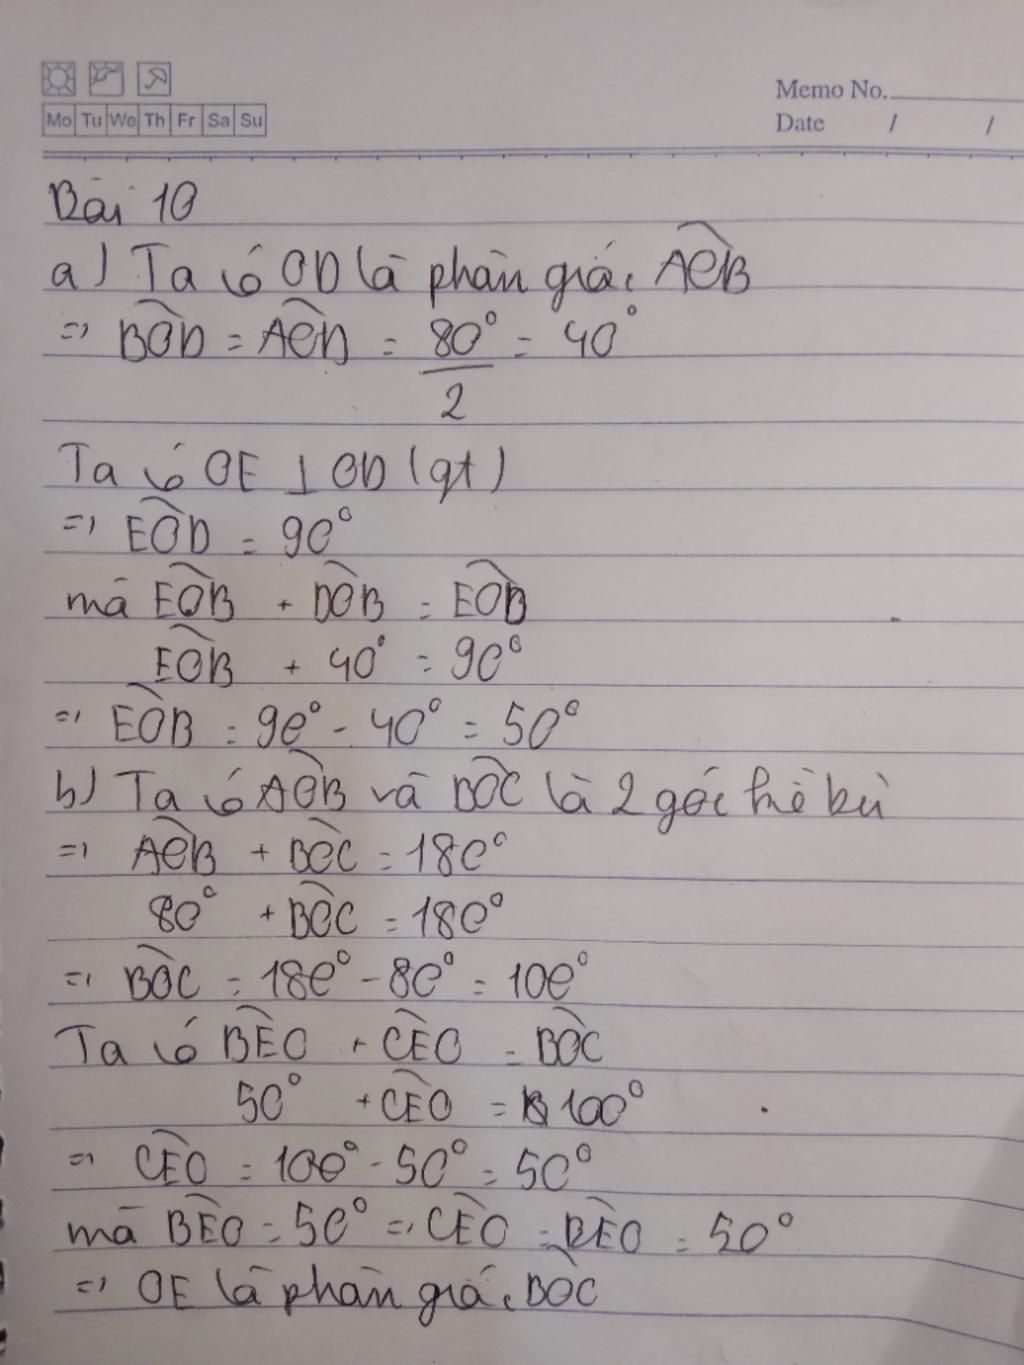 Mo Tu We Th Fr Sa Su
Memo No.
Date / /
Bài 10
a) Ta có OD là phân giác AOB
=> BOD = AOD = 80° / 2 = 40°
Ta có OE ⊥ OD (gt)
=> EOD = 90°
mà EOB + DOB = EOD
EOB + 40° = 90°
=> EOB = 90° - 40° = 50°
b) Ta có AOB và BOC là 2 góc kề bù
=> AOB + BOC = 180°
80° + BOC = 180°
=> BOC = 180° - 80° = 100°
Ta có BEO + CEO = BOC
50° + CEO = 100°
=> CEO = 100° - 50° = 50°
mà BEO = 50° => CEO = BEO = 50°
=> OE là phân giác BOC